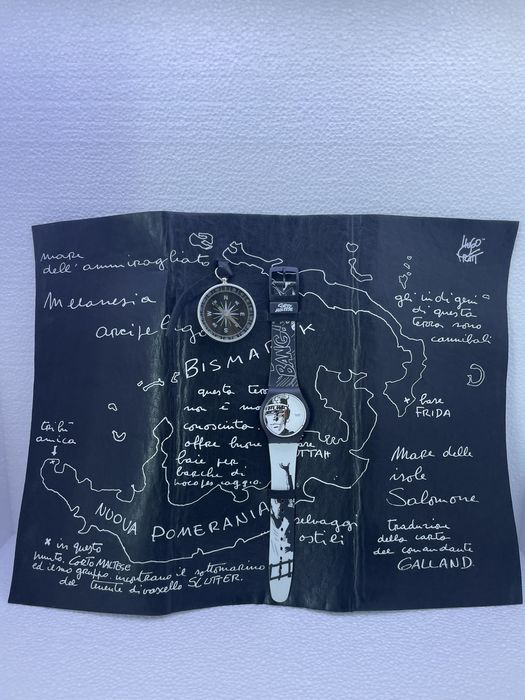 mare
dell'ammiragliato
HUGO
PRATT
Melanesia
arcipelago
BISMARK
gli indigeni
di questa
terra sono
cannibali
N
E
S
W
CORTO
MALTESE
BANG
questa
non è
conosciuta
offre buone
baie per
barche di
base
FRIDA
tribù
amica
Mare delle
isole
Salomone
NUOVA POMERANIA
selvaggi
ostili
traduzione
della carta
del comandante
GALLAND.
x in questo
punto, CORTO MALTESE
ed il suo gruppo incontrano il sottomarino
del tenente di vascello SLUTTER.